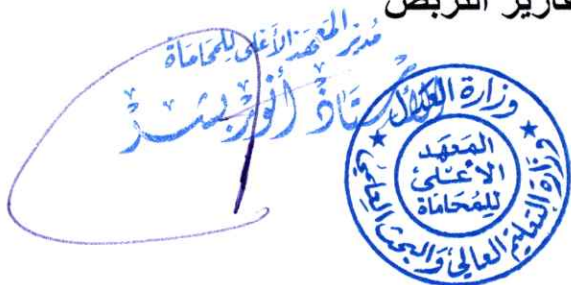 تقارير التربص
مدير المعهد الأعلى للمحاماة
الأستاذ أنور بشر
وزارة العدل
المعهد
الأعلى
للمحاماة
وزارة التعليم العالي والبحث العلمي